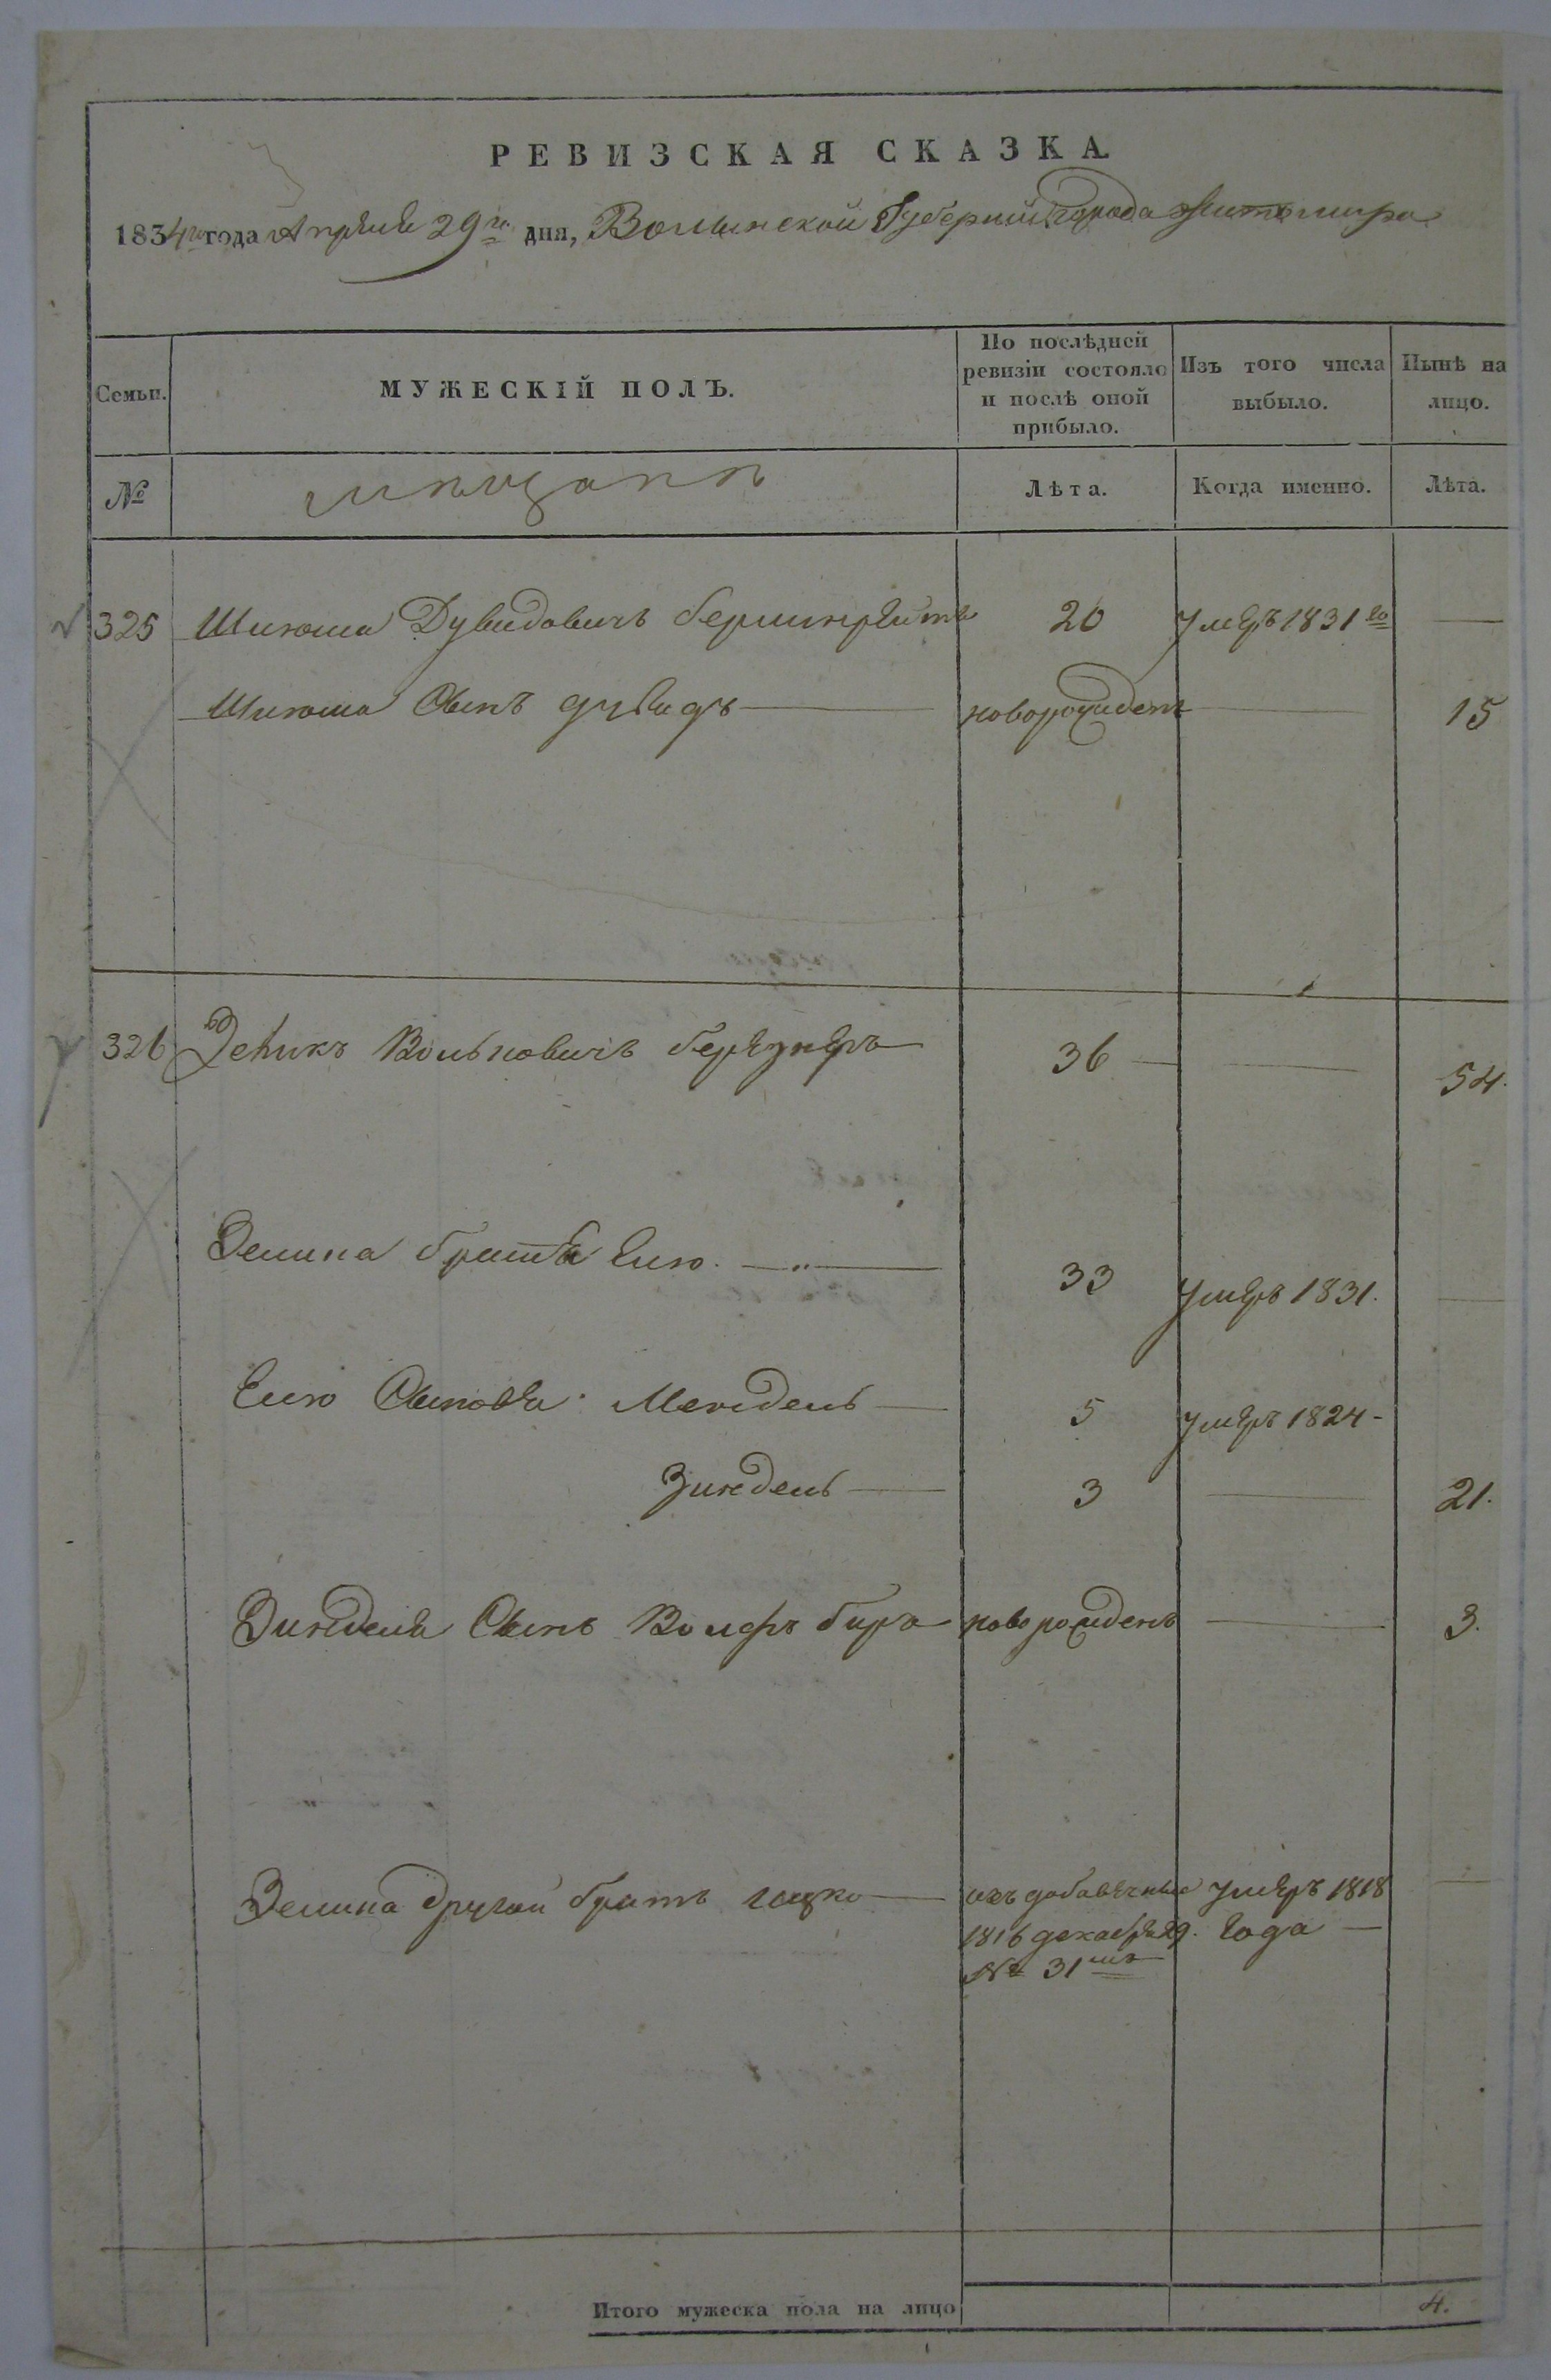 РЕВИЗСКАЯ СКАЗКА.
1834го года Апреля 29го дня, Волынской Губернии города Житомира
Семьи.
МУЖЕСКІЙ ПОЛЪ.
По послѣдней ревизіи состояло и послѣ оной прибыло.
Изъ того числа выбыло.
Нынѣ на лицо.
№
мещанъ
Лѣта.
Когда именно.
Лѣта.
325 Дувидовичъ 20 умеръ 1831го —
Сынъ дувидъ — новорожденъ — 15
326 Вольковичъ 36 — — 54.
брать 33 умеръ 1831. —
Сыновья Мендель — 5 умеръ 1824 -
Зиндель — 3 — 21.
Зинделя Сынъ Волфъ бира новорожденъ — 3.
Зелика другой братъ ицко — изъ добавочныхъ умеръ 1818
1816 декабря 29. года —
№ 31мъ
Итого мужеска пола на лицо 4.